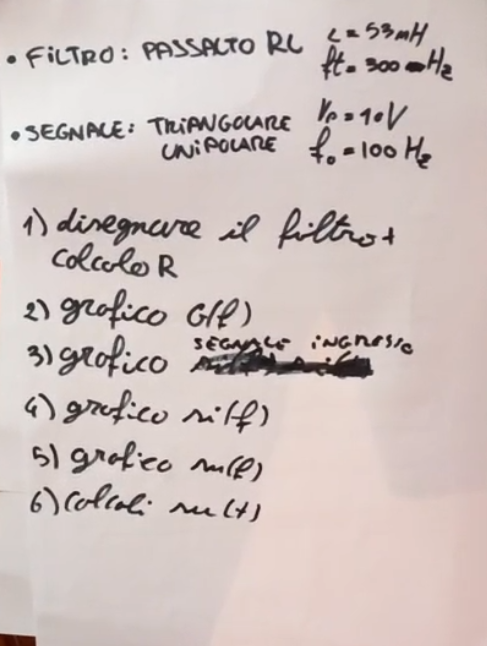 • FILTRO: PASSALTO RL L = 53mH
ft = 300 Hz
• SEGNALE: TRIANGOLARE Vp = 10V
UNIPOLARE fo = 100 Hz
1) disegnare il filtro +
calcolo R
2) grafico G(f)
3) grafico SEGNALE INGRESSO
4) grafico si(f)
5) grafico su(f)
6) calcoli su(t)